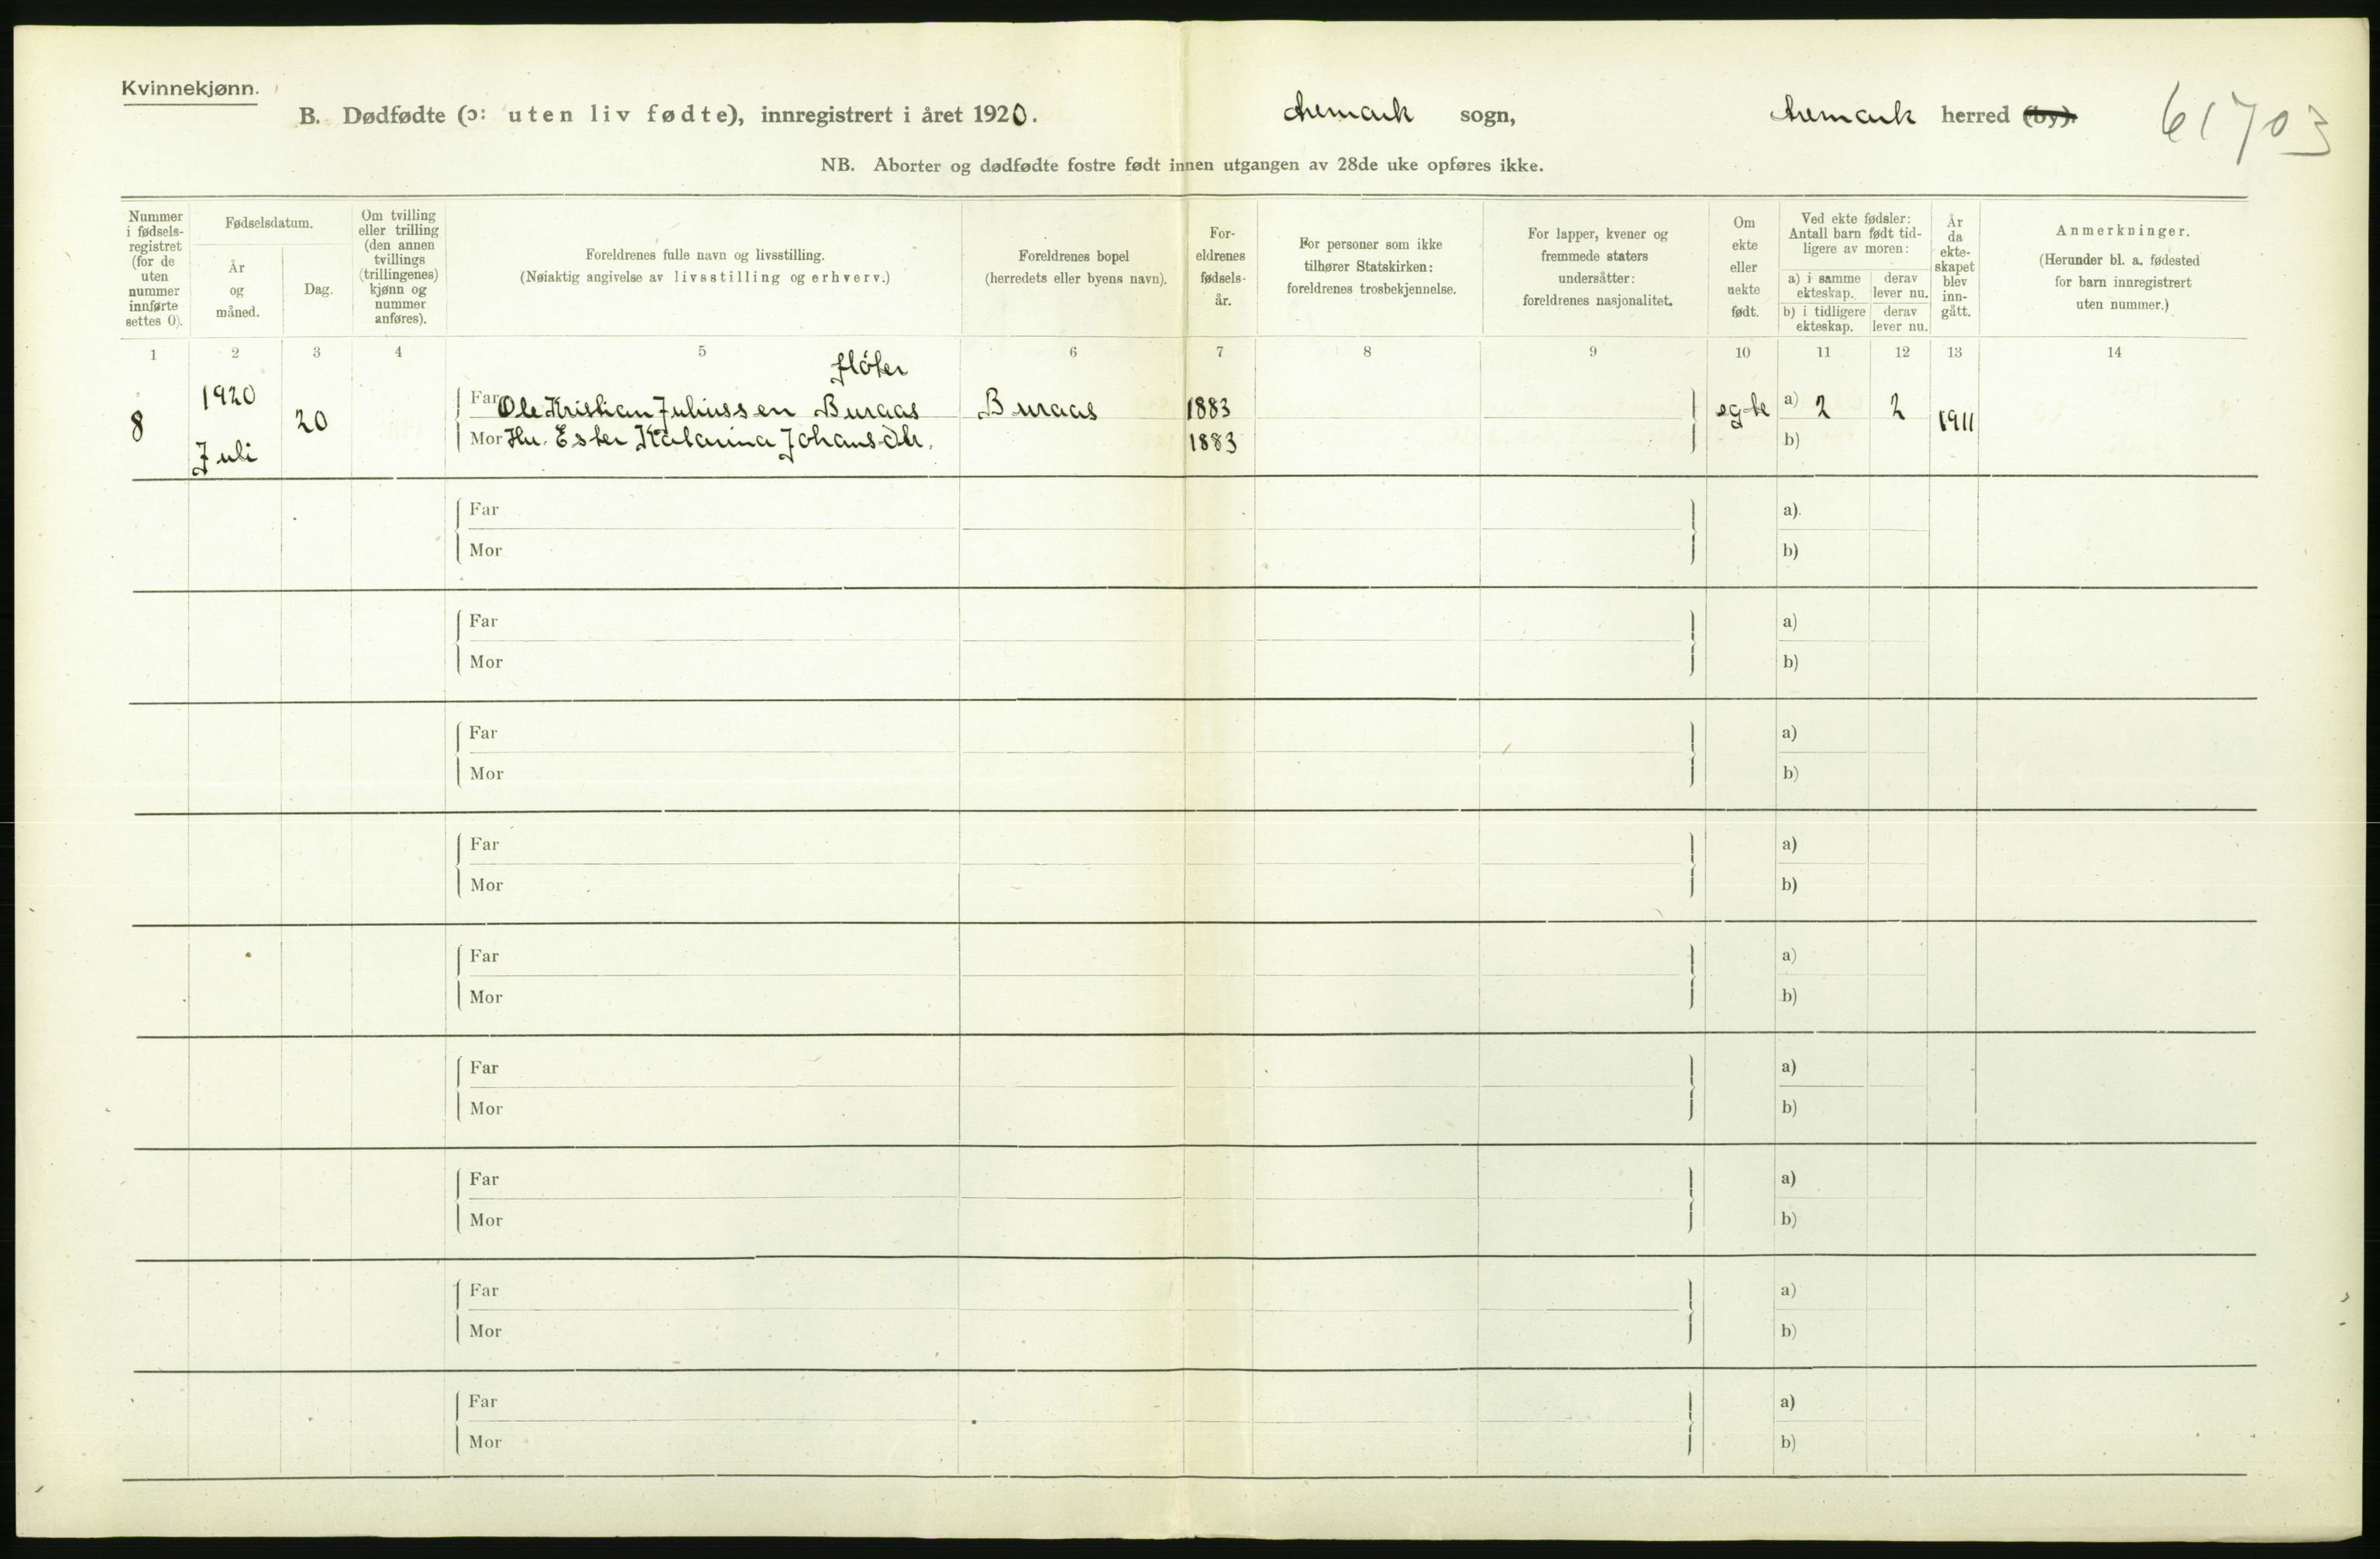 Kvinnekjønn.
B. Dødfødte (ɔ: uten liv fødte), innregistrert i året 1920. Aremark sogn, Aremark herred (by).
61703
NB. Aborter og dødfødte fostre født innen utgangen av 28de uke opføres ikke.
Nummer i fødsels-registret (for de uten nummer innførte settes 0).
Fødselsdatum.
År og måned.
Dag.
Om tvilling eller trilling (den annen tvillings (trillingenes) kjønn og nummer anføres).
Foreldrenes fulle navn og livsstilling.
(Nøiaktig angivelse av livsstilling og erhverv.)
Foreldrenes bopel
(herredets eller byens navn).
For-eldrenes fødsels-år.
For personer som ikke tilhører Statskirken: foreldrenes trosbekjennelse.
For lapper, kvener og fremmede staters undersåtter: foreldrenes nasjonalitet.
Om ekte eller uekte født.
Ved ekte fødsler: Antall barn født tid-ligere av moren:
a) i samme ekteskap.
derav lever nu.
b) i tidligere ekteskap.
derav lever nu.
År da ekte-skapet blev inn-gått.
Anmerkninger.
(Herunder bl. a. fødested for barn innregistrert uten nummer.)
1 2 3 4 5 6 7 8 9 10 11 12 13 14
fløter
8 1920 Juli 20
Far Ole Kristian Juliussen Buraas Buraas 1883 egte a) 2 2 1911
Mor Hu. Ester Katarina Johansdtr. 1883 b)
Far a)
Mor b)
Far a)
Mor b)
Far a)
Mor b)
Far a)
Mor b)
Far a)
Mor b)
Far a)
Mor b)
Far a)
Mor b)
Far a)
Mor b)
Far a)
Mor b)